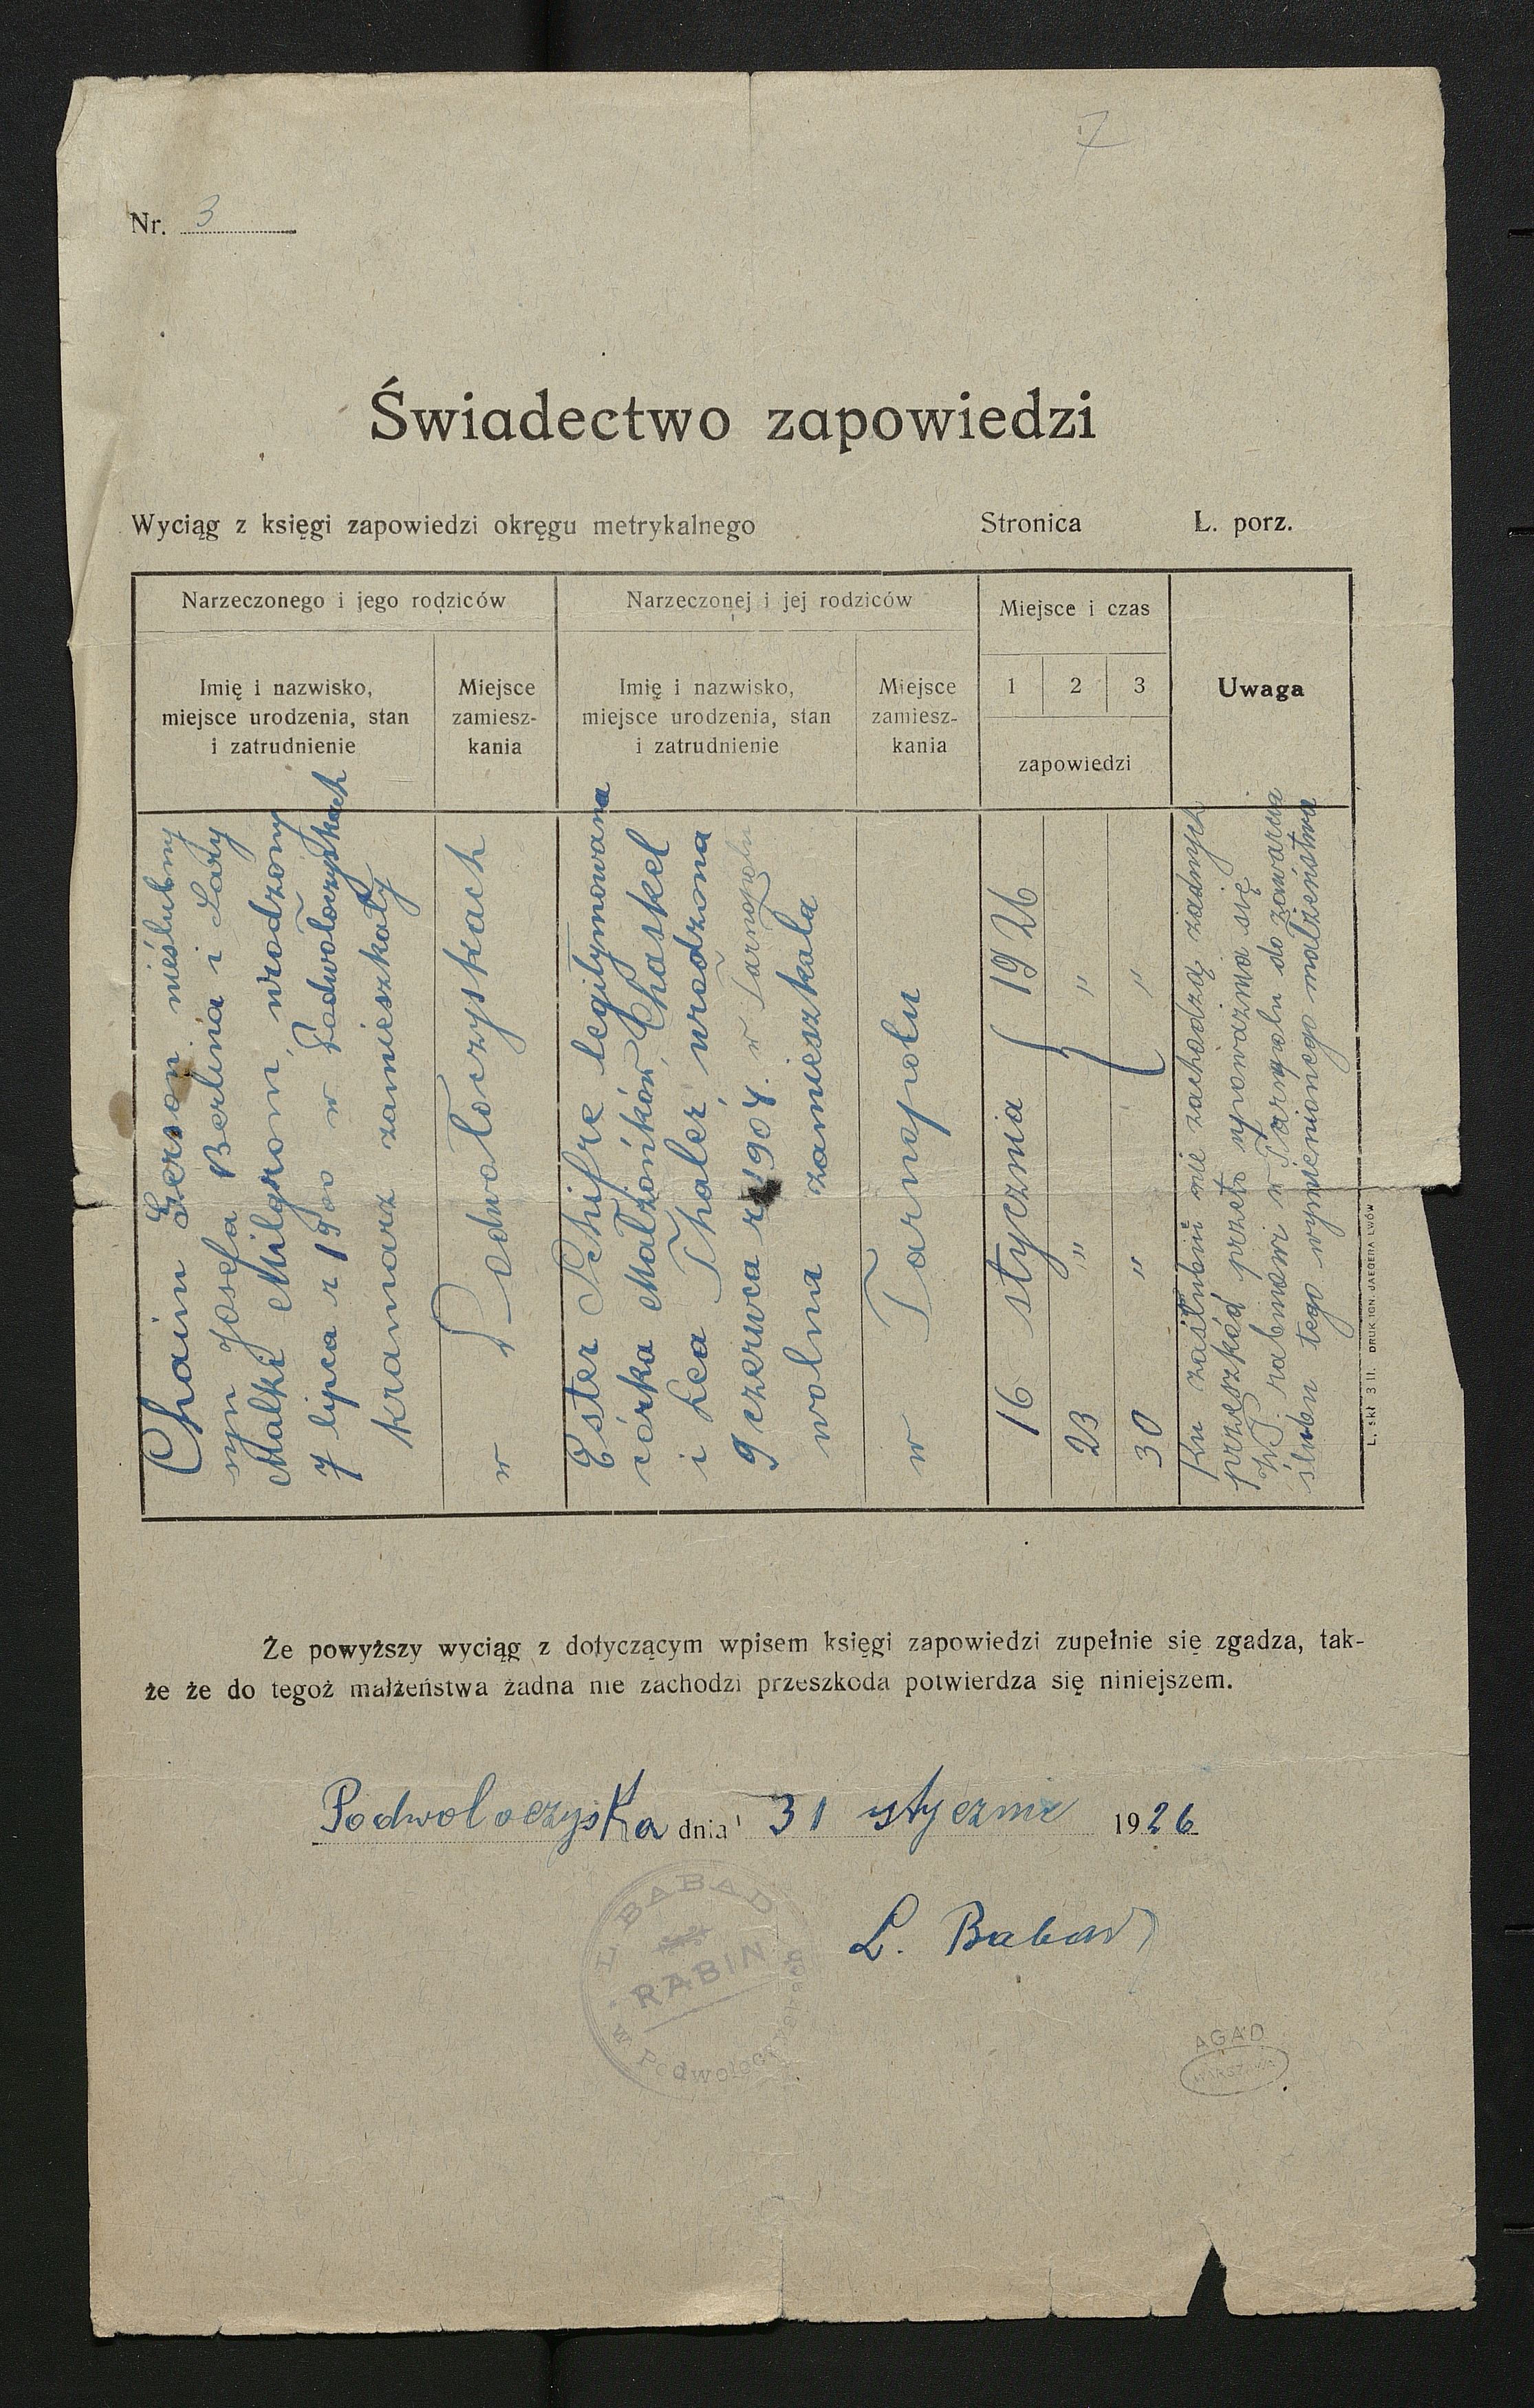 7
Nr. 3
Świadectwo zapowiedzi
Wyciąg z księgi zapowiedzi okręgu metrykalnego Stronica L. porz.
Narzeczonego i jego rodziców
Imię i nazwisko,
miejsce urodzenia, stan
i zatrudnienie
Miejsce
zamiesz-
kania
Narzeczonej i jej rodziców
Imię i nazwisko,
miejsce urodzenia, stan
i zatrudnienie
Miejsce
zamiesz-
kania
Miejsce i czas
1 2 3
zapowiedzi
Uwaga
Chaim Gerson nieślubny
syn Josefa Berlina i Sary
Malki Milgrom, urodzony
7 lipca r 1900 w Podwołoczyskach
kramarz zamieszkały
w Podwołoczyskach
Ester Schifre legitymowana
córka Małżonków Chaskel
i Lea Thaler, urodzona
9 czerwca r 1904. w Tarnopolu
wolna zamieszkała
w Tarnopolu
16 stycznia 1926
23 " "
30 " "
Ku zaślubin nie zachodzą żadnych
przeszkód przeto upoważnia się
W.P. rabinowi w Tarnopolu do zawarcia
ślubu tego wymienionego małżeństwa
L. skł 3 II. DRUK IGN. JAEGERA LWÓW
Że powyższy wyciąg z dotyczącym wpisem księgi zapowiedzi zupełnie się zgadza, tak-
że że do tegoż małżeństwa żadna nie zachodzi przeszkoda potwierdza się niniejszem.
Podwoloczyska dnia 31 stycznia 1926
L. Babad
L. BABAD
RABIN
w Podwołoczyskach
AGAD
WARSZAWA